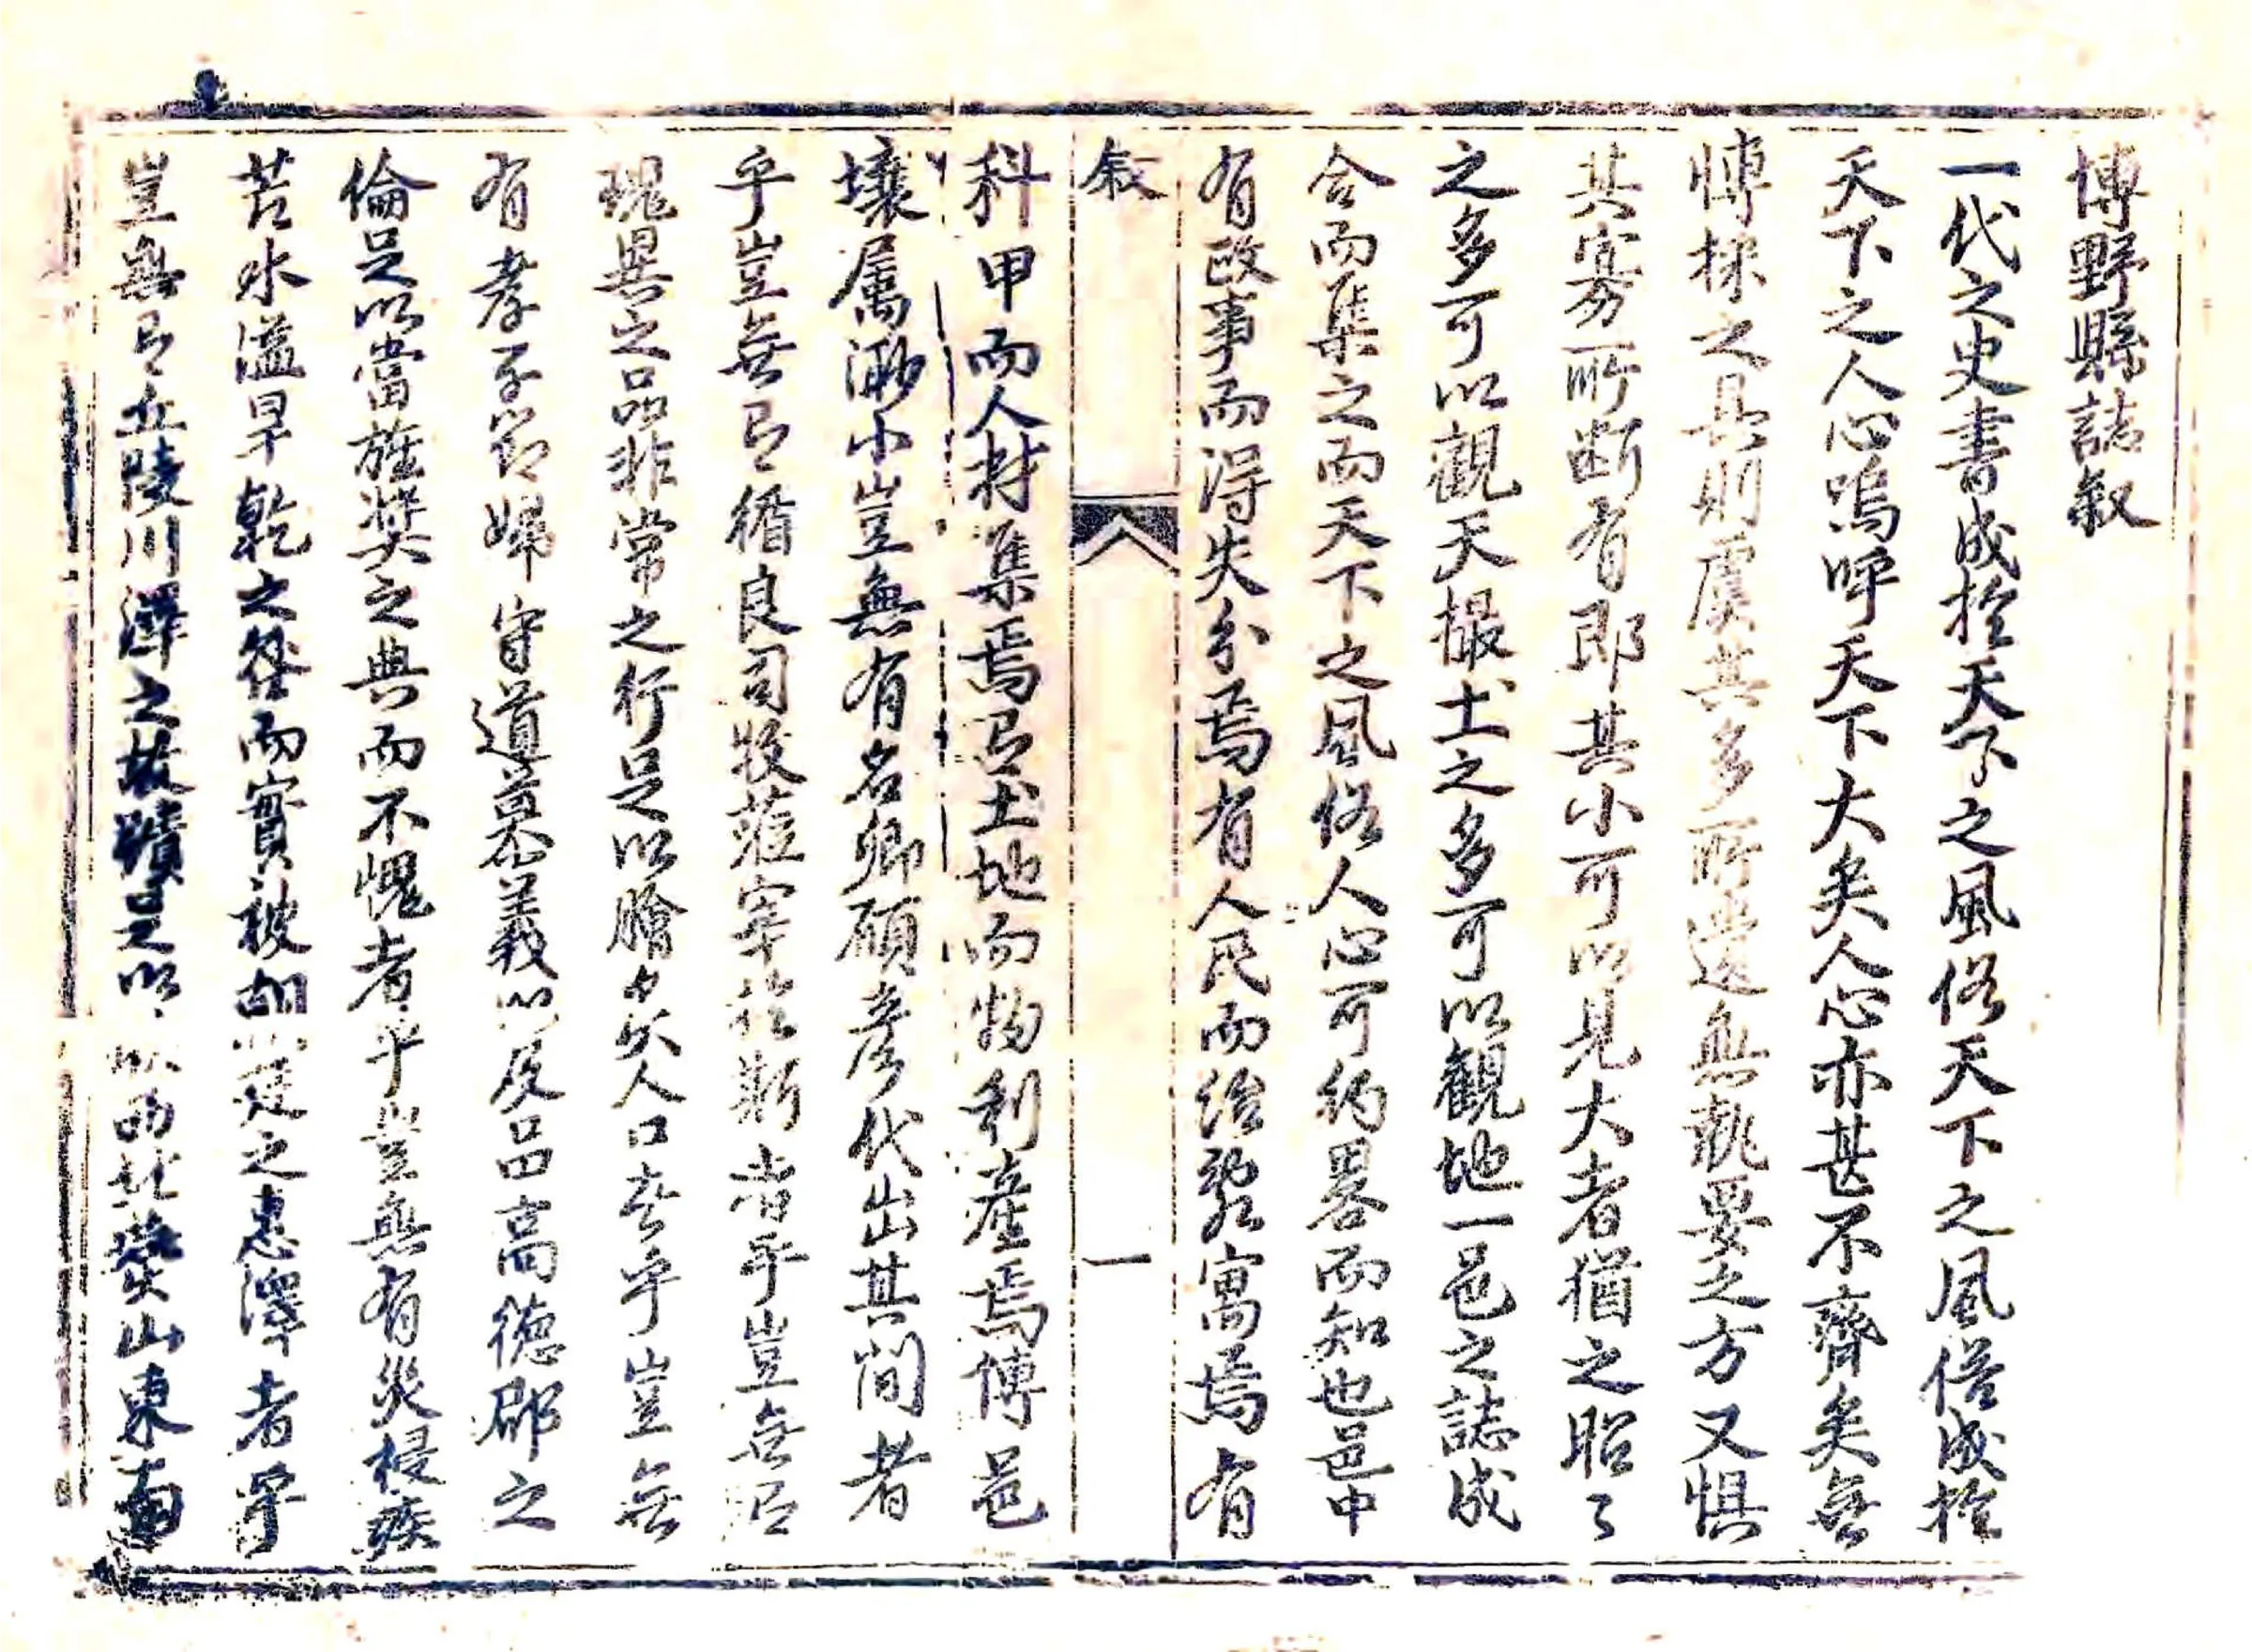 博野縣誌叙
一代之史書成於天下之風俗天下之風俗成於
天下之人心嗚呼天下大矣人心亦甚不齊矣無
博採之具則虞其多所遺無執要之方又惧
其寡所断有即其小可以見大者猶之昭々
之多可以觀天撮土之多可以觀地一邑之誌成
合而集之而天下之風俗人心可約畧而知也邑中
有政事而得失分焉有人民而繁寓焉有
叙
一
科甲而人材集焉有土地而物利產焉博邑
壤属渺小豈無有名卿碩彥代出其間者
乎豈無有循良司牧蒞宰於斯者乎豈無有
瑰異之品非常之行足以膾炙人口者乎豈無
有孝子節婦守道慕義以及品高德郡之
倫足以當旌奬之典而不愧者乎豈無有災祲疾
苦水溢旱乾之徑而實被之惠澤者乎
豈無有丘陵川澤之故蹟足以西北山東南